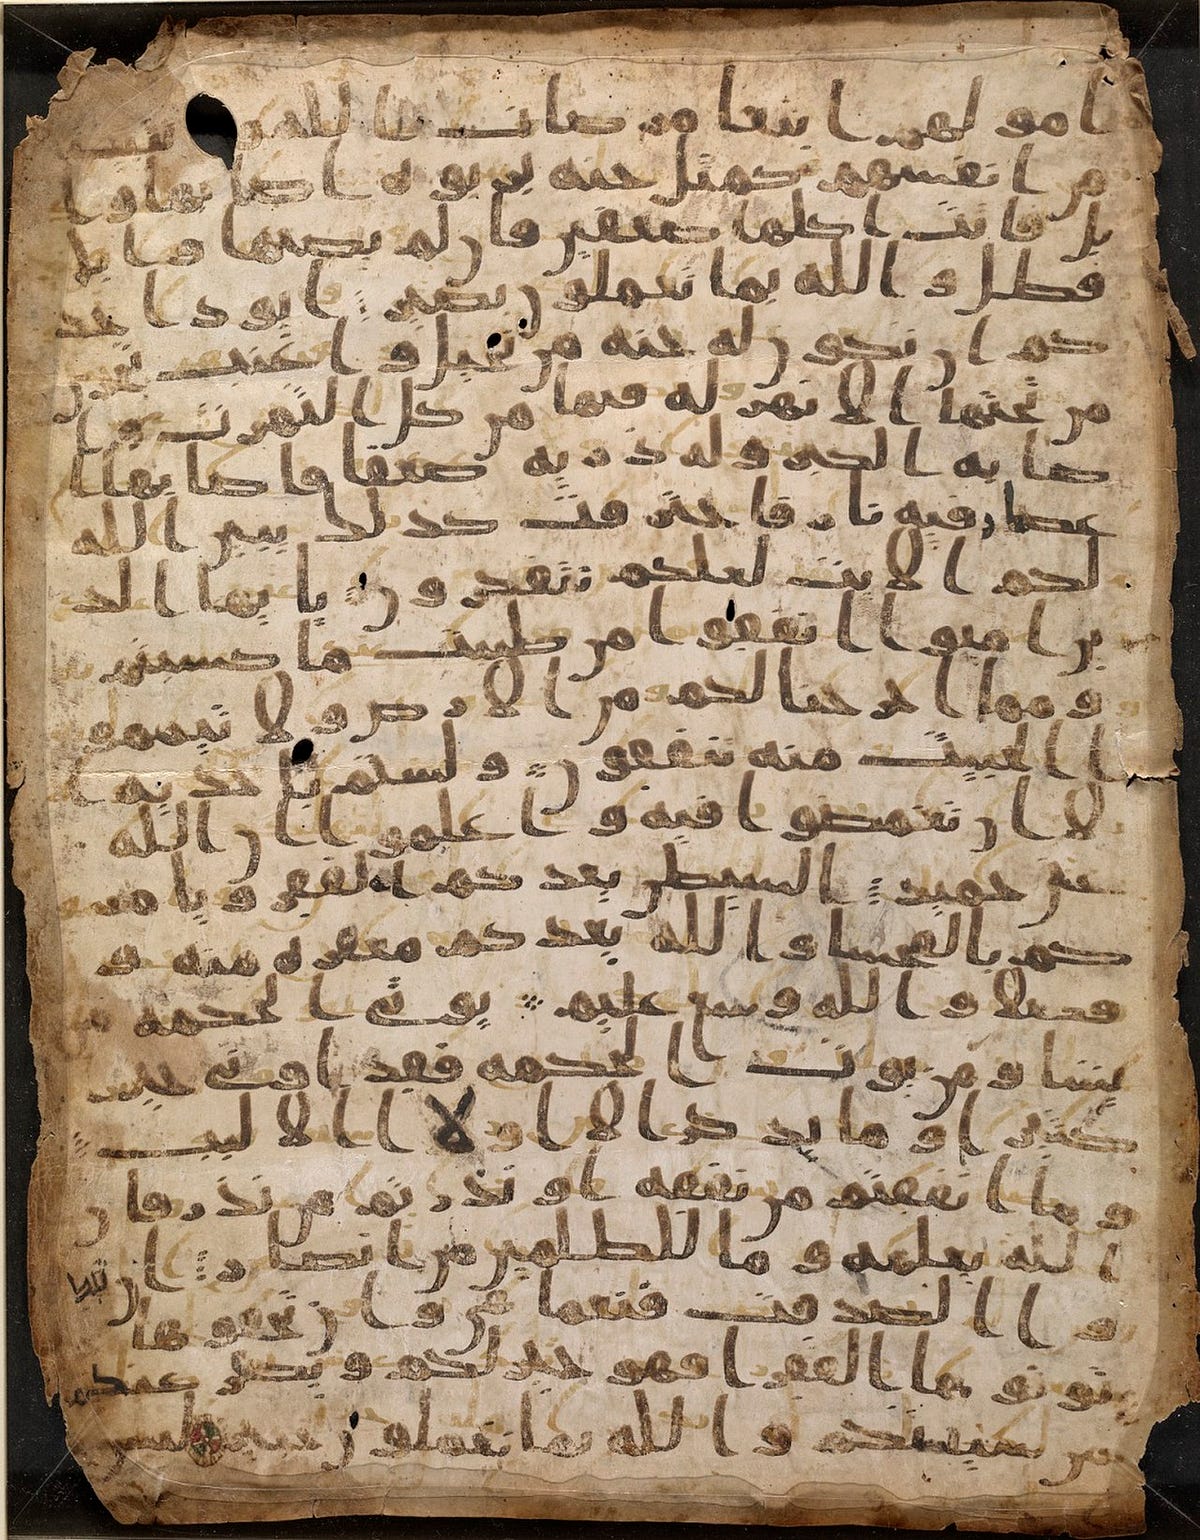 ا مولهم ا بتغا مرضات ا لله و تثبيتا
من ا نفسهم كمثل جنه بربوه ا صابها و ا
بل فا تت ا كلها ضعفين فا ن لم يصبها و ا بل
فطل و ا لله بما تعملون بصير ا يود ا حد
كم ا ن تكون له جنه من نخيل و ا عنب تجرى
من تحتها ا لا نهر له فيها من كل ا لثمرت و ا
صا به ا لكبر و له ذريه ضعفا فا صا بها ا
عصار فيه نا ر فا حترقت كذلك يبين ا لله
لكم ا لا يت لعلكم تتفكرون يا يها ا لذ
ين ا منو ا ا نفقو ا من طيبت ما كسبتم
و مما ا خر جنا لكم من ا لا رض و لا تيممو
ا ا لخبيث منه تنفقون و لستم با خذيه ا
لا ا ن تغمضو ا فيه و ا علمو ا ا ن ا لله
غنى حميد ا لشيطن يعد كم ا لفقر و يا مر
كم با لفحشا و ا لله يعد كم مغفره منه و
فضلا و ا لله و سع عليم يو تى ا لحكمه من
يشا و من يو ت ا لحكمه فقد ا و تى خير
كثير ا و ما يذ كر ا لا ا و لا ا ا لا لبب
و ما ا نفقتم من نفقه ا و نذ ر تم من نذ ر فا ن
ا لله يعلمه و ما للظلمين من ا نصا ر ا ن تبد
و ا ا لصد قت فنعما هى و ا ن تخفو ها
و تو تو ها ا لفقر ا فهو خير لكم و يكفر عنكم
من سيا تكم و ا لله بما تعملون خبير ليس